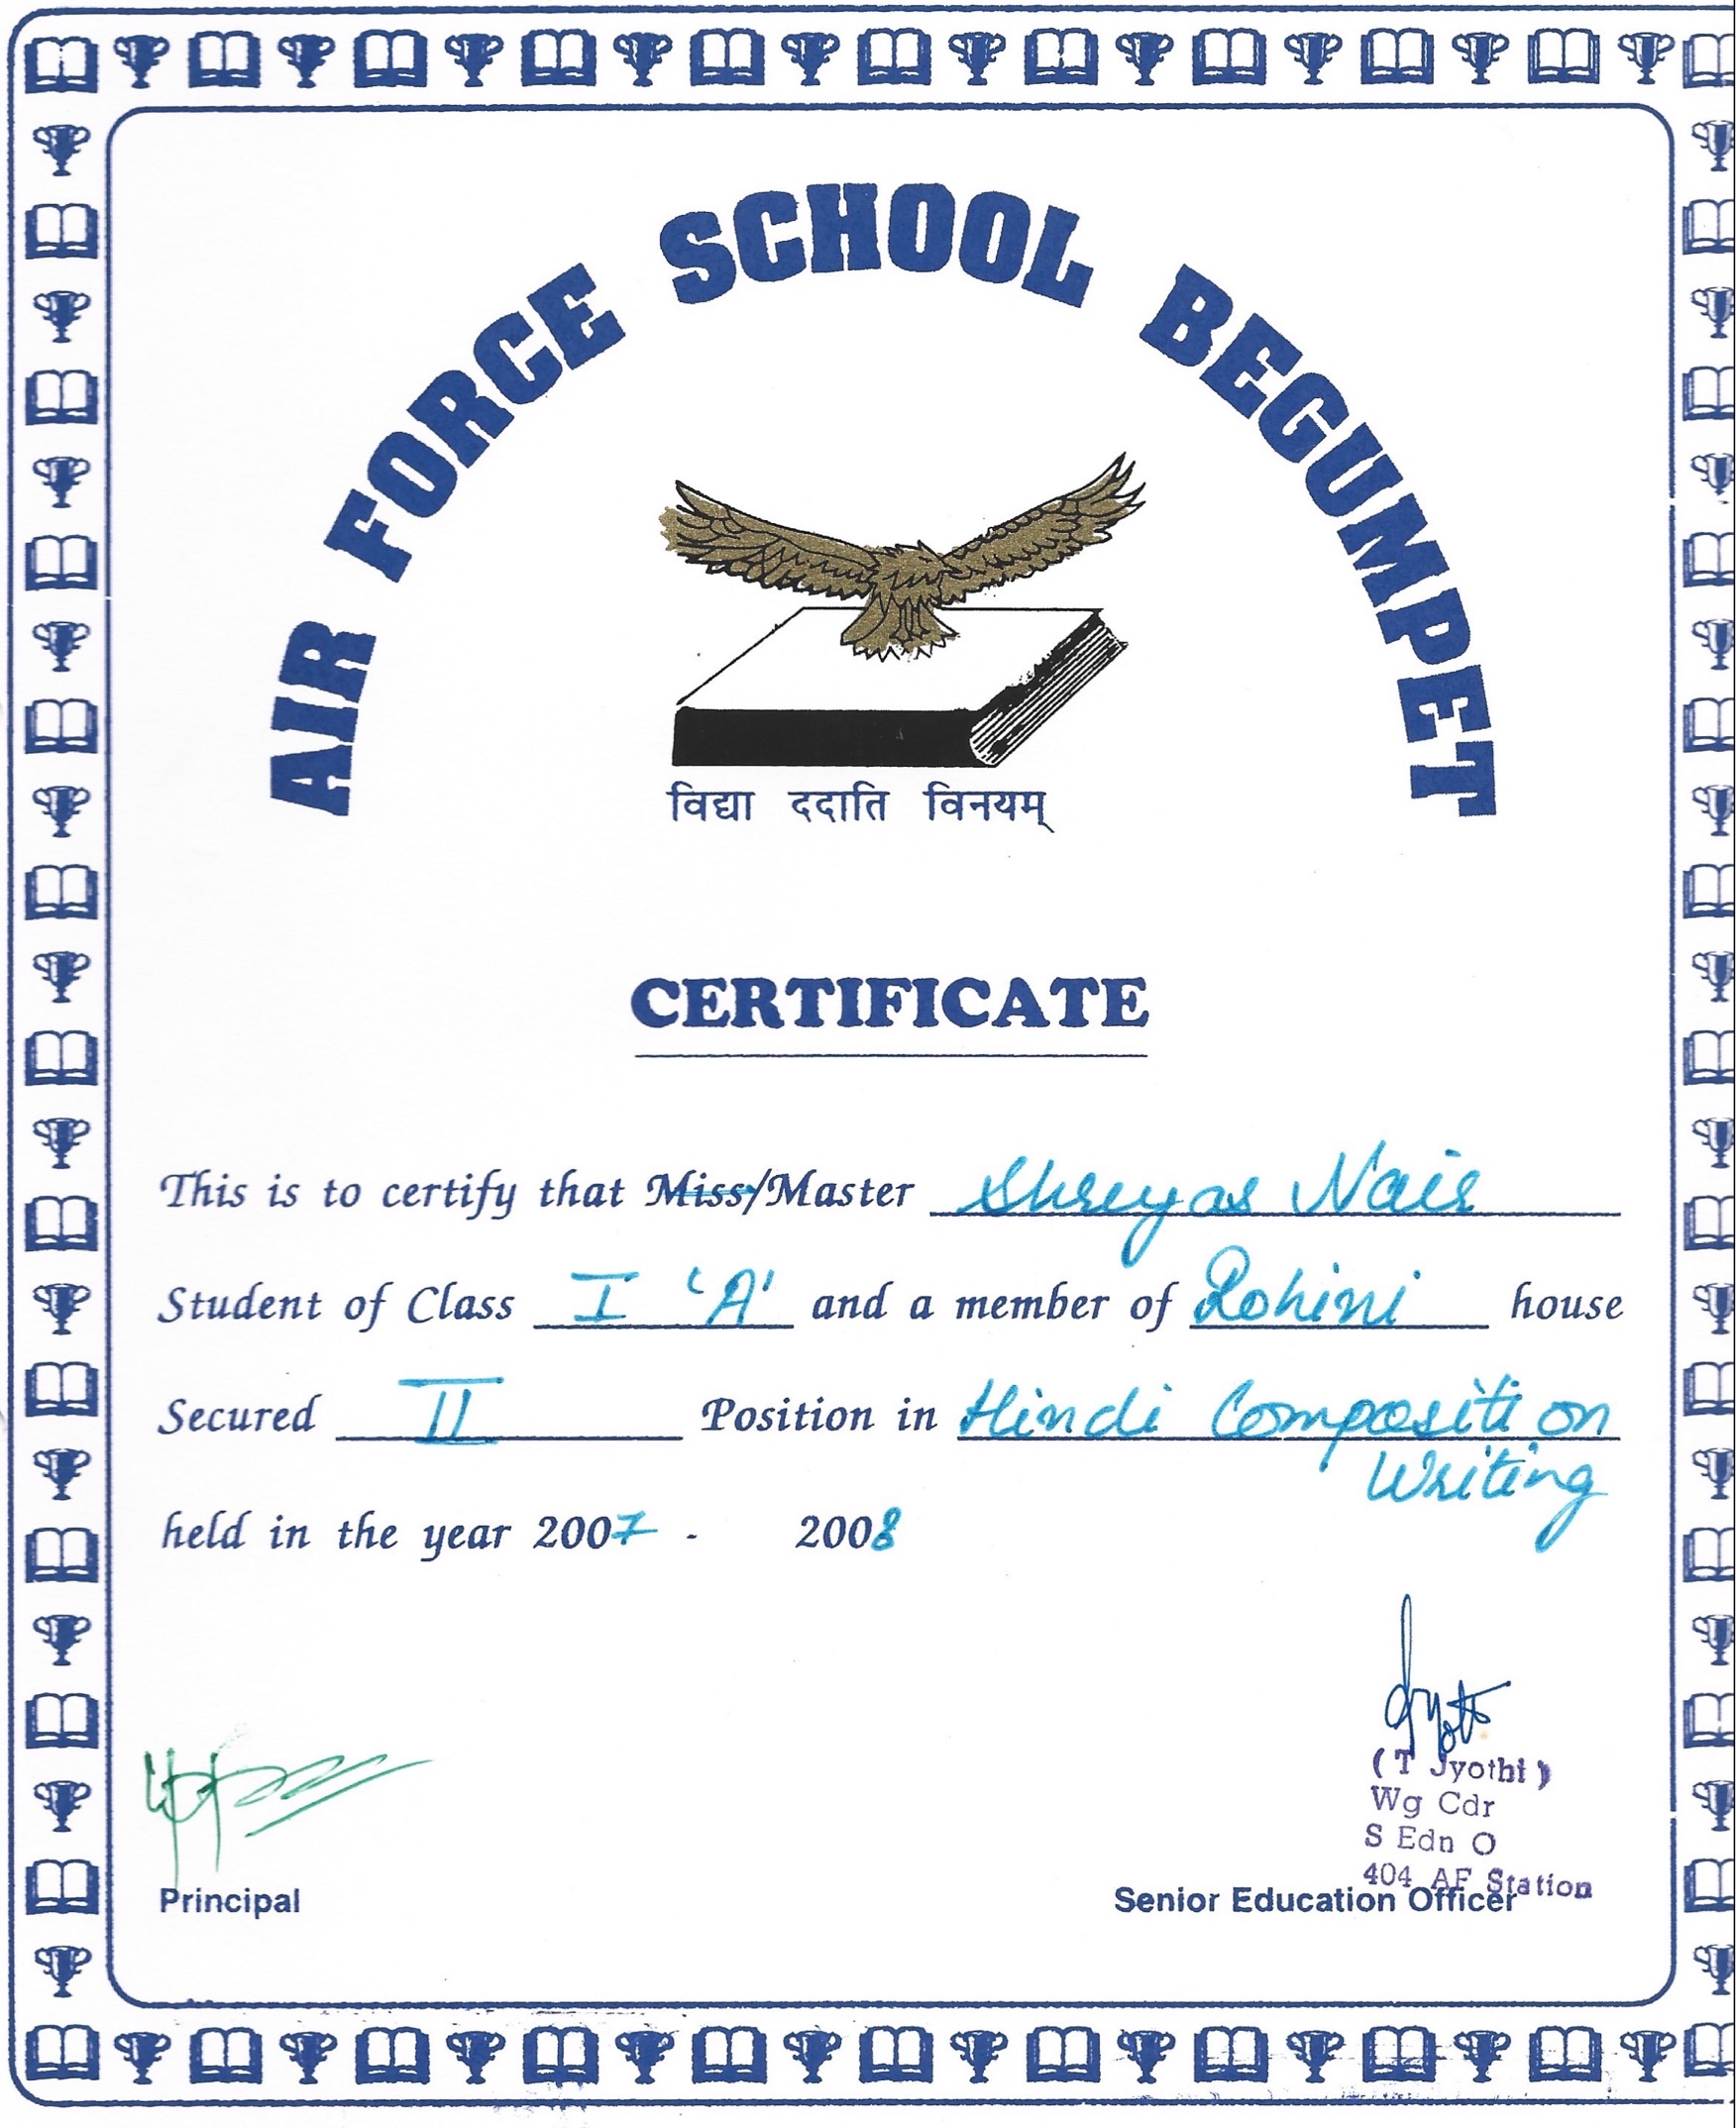 AIR FORCE SCHOOL BEGUMPET
विद्या ददाति विनयम्
CERTIFICATE
This is to certify that Miss/Master Shreyas Nair
Student of Class I 'A' and a member of Rohini house
Secured II Position in Hindi Composition
Writing
held in the year 2007 - 2008
Jyothi
(T Jyothi)
Wg Cdr
S Edn O
404 AF Station
Principal Senior Education Officer